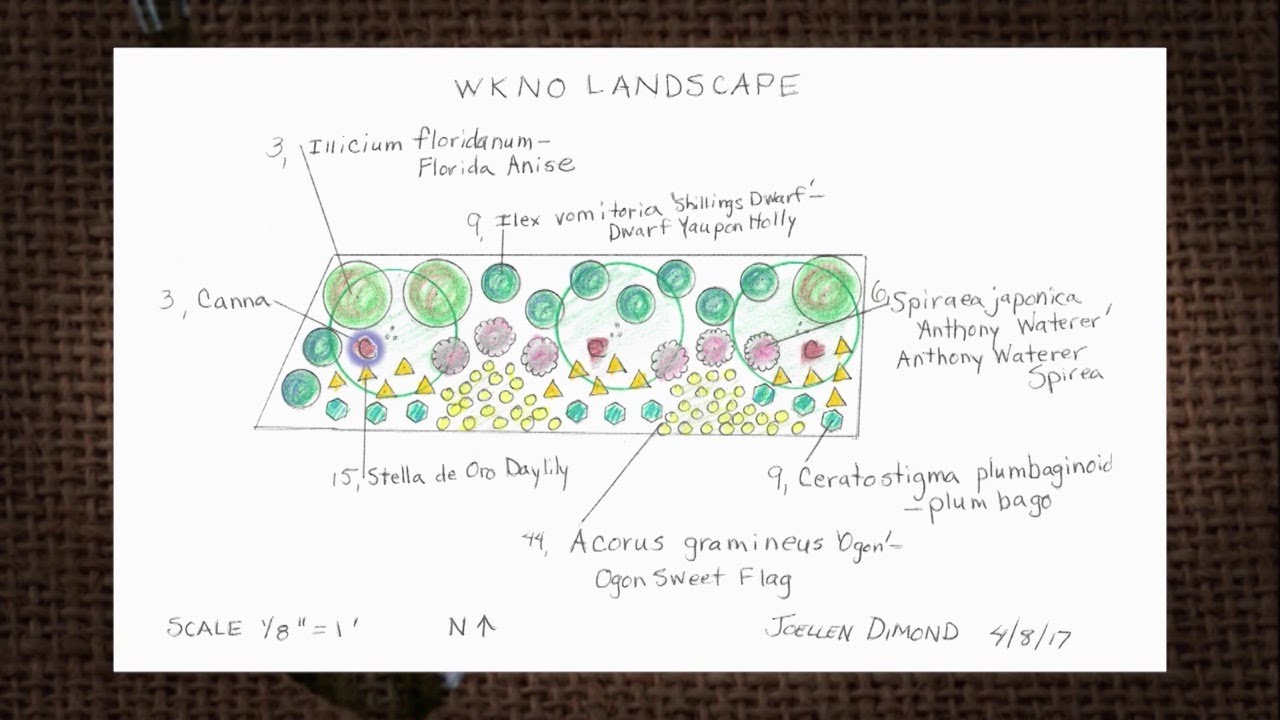 WKNO LANDSCAPE
3, Illicium floridanum-
Florida Anise
9, Ilex vomitoria 'Shillings Dwarf'-
Dwarf Yaupon Holly
3, Canna
6, Spiraea japonica
'Anthony Waterer'
Anthony Waterer
Spirea
15, Stella de Oro Daylily
9, Ceratostigma plumbaginoid
- plumbago
44, Acorus gramineus 'Ogon'-
Ogon Sweet Flag
SCALE 1/8" = 1'
N ↑
JOELLEN DIMOND 4/8/17